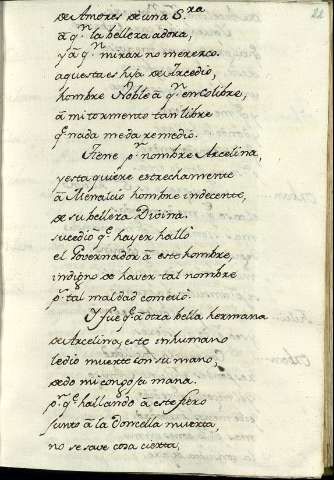 de Amores de una S.ra
â q.n la belleza adora,
y â q.n mirar no merezco.
aquesta es hija de Arcedio,
hombre Noble â q.n en Colibre,
â mi tormento tan libre
q.e nada me da remedio.
Tiene p.r nombre Arcelina,
y esta quiere estrechamente
â Menalcio hombre indecente,
de su belleza Divina.
sucediò q.e hayer hallò
el Governador â este hombre,
indigno de haver tal nombre
p.r tal maldad cometiò.
Y fue q.e â otra bella hermana
de Arcelina, este inhumano
le diò muerte con su mano,
de do mi congoja mana.
p.r q.e hallando â este fiero
junto â la Doncella muerta,
no se save cosa cierta,
22